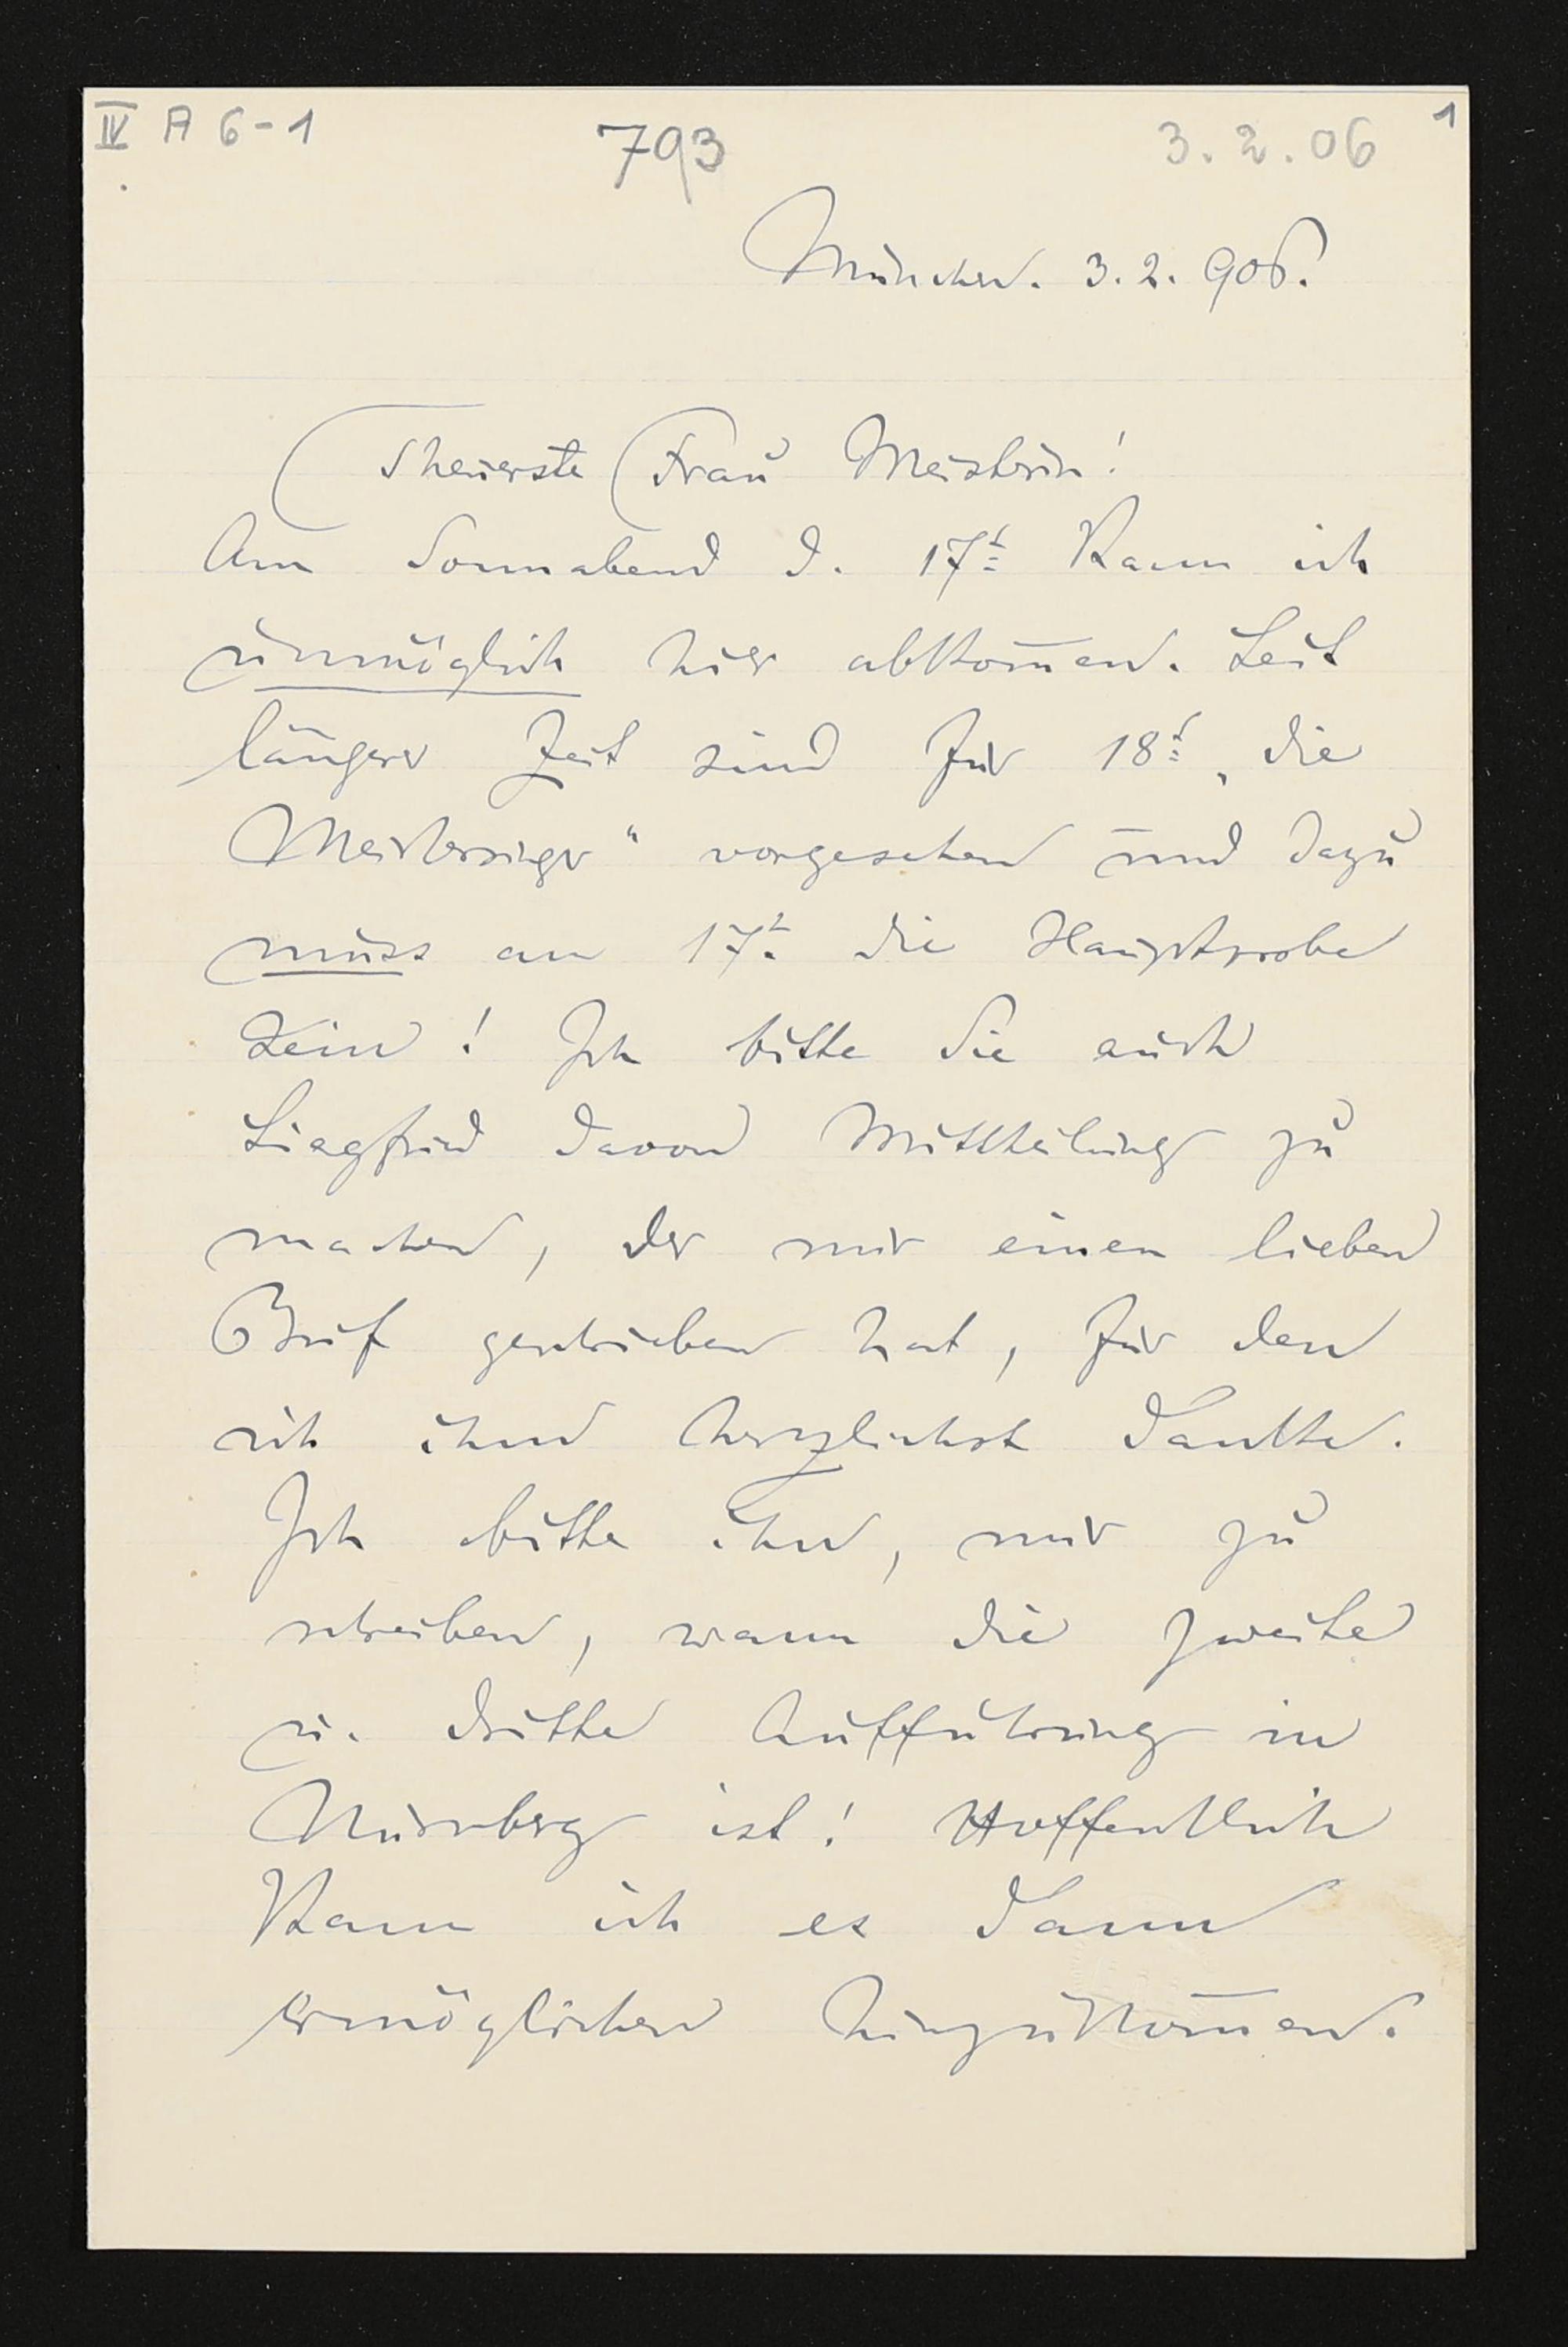 IV A 6-1 793 3.2.06 1
München. 3.2.906.
Theuerste Frau Meisterin!
Am Sonnabend d. 17t. kann ich
unmöglich hier abkom̅en. Seit
längerer Zeit sind für 18t. „die
Meistersinger“ vorgesehen und dazu
muss am 17t. die Hauptprobe
sein! Ich bitte Sie auch
Siegfried davon Mittheilung zu
machen, der mir einen lieben
Brief geschrieben hat, für den
ich ihm herzlichst danke.
Ich bitte ihn, mir zu
schreiben, wann die zweite
u. dritte Aufführung in
Nürnberg ist! Hoffentlich
kann ich es dann
ermöglichen hinzukom̅en.